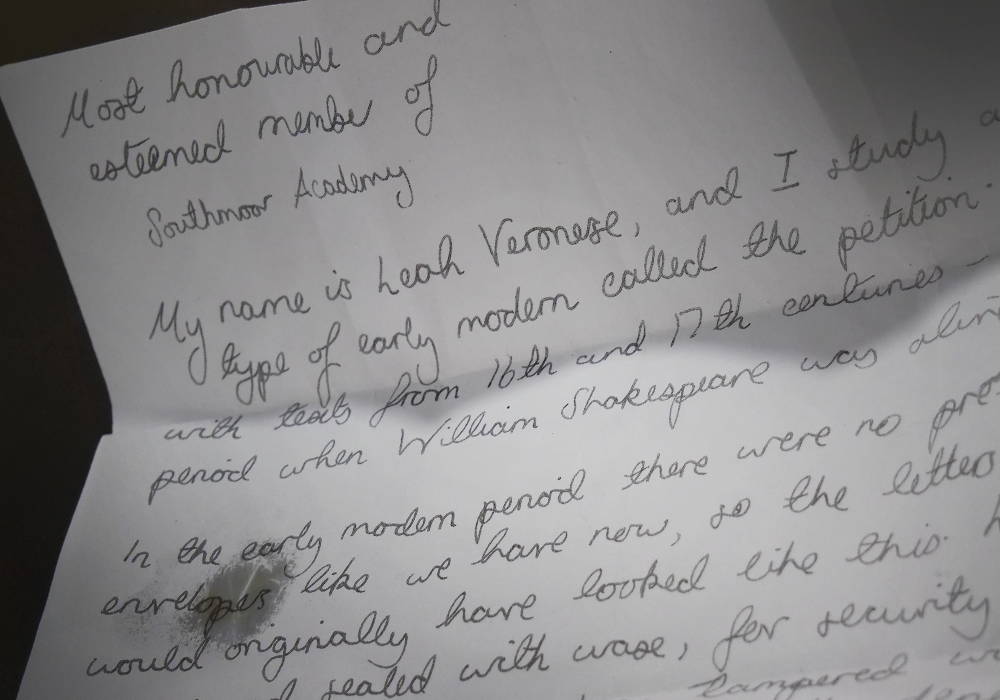 Most honourable and
esteemed membe of
Southmoor Academy
My name is Leah Veronese, and I study a
type of early modern called the petition.
with texts from 16th and 17th centuries -
period when William Shakespeare was
In the early modern period there were no
envelopes like we have now, so the letters
would originally have looked like this.
sealed with waxe, for security
tampered